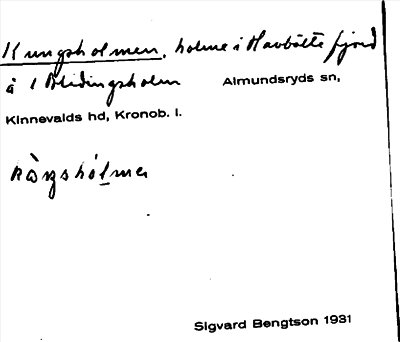 Kungsholmen, holme i Havbältefjord
å 1 Blidingsholm Almundsryds sn,
Kinnevalds hd, Kronob. l.
Sigvard Bengtson 1931